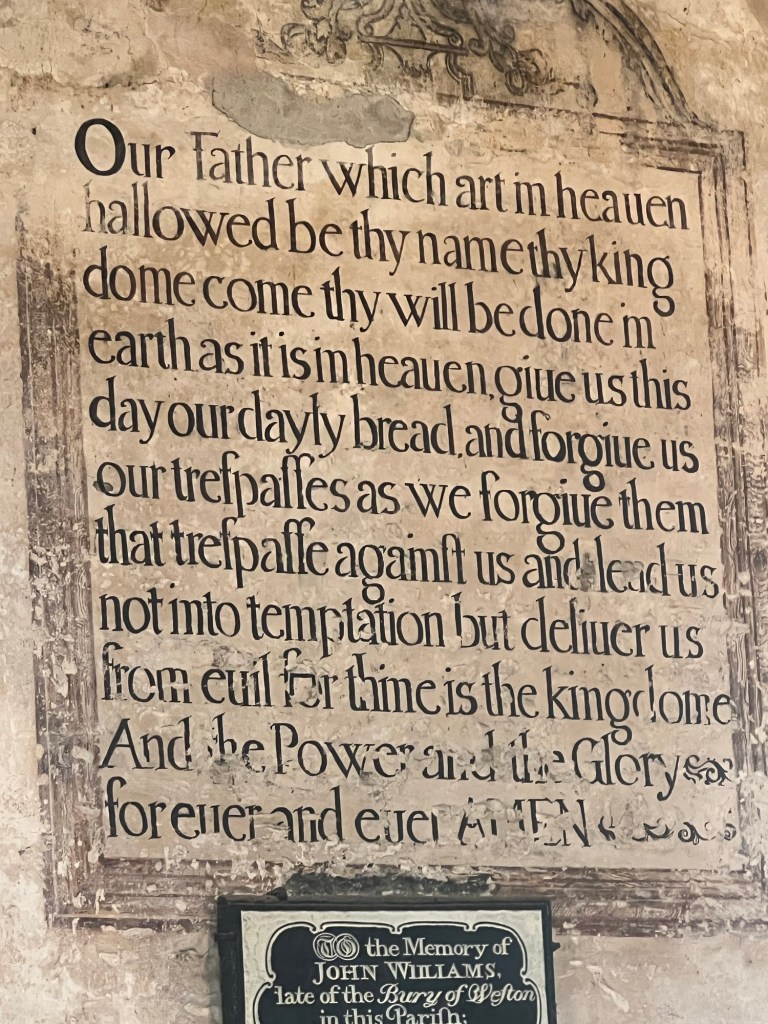 Our Father which art in heauen
hallowed be thy name thy king
dome come thy will be done in
earth as it is in heauen, giue us this
day our dayly bread, and forgiue us
our treſpaſſes as we forgiue them
that treſpaſſe againſt us and lead us
not into temptation but deliuer us
from euil for thine is the kingdome
And the Power and the Glory
for euer and euer AMEN
TO the Memory of
JOHN WILLIAMS,
late of the Bury of Weſton
in this Pariſh;